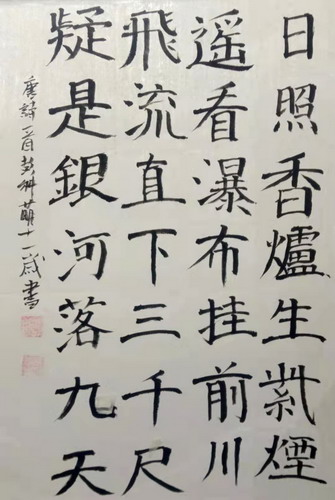 日照香爐生紫煙
遙看瀑布挂前川
飛流直下三千尺
疑是銀河落九天
唐詩一首 十一歲書